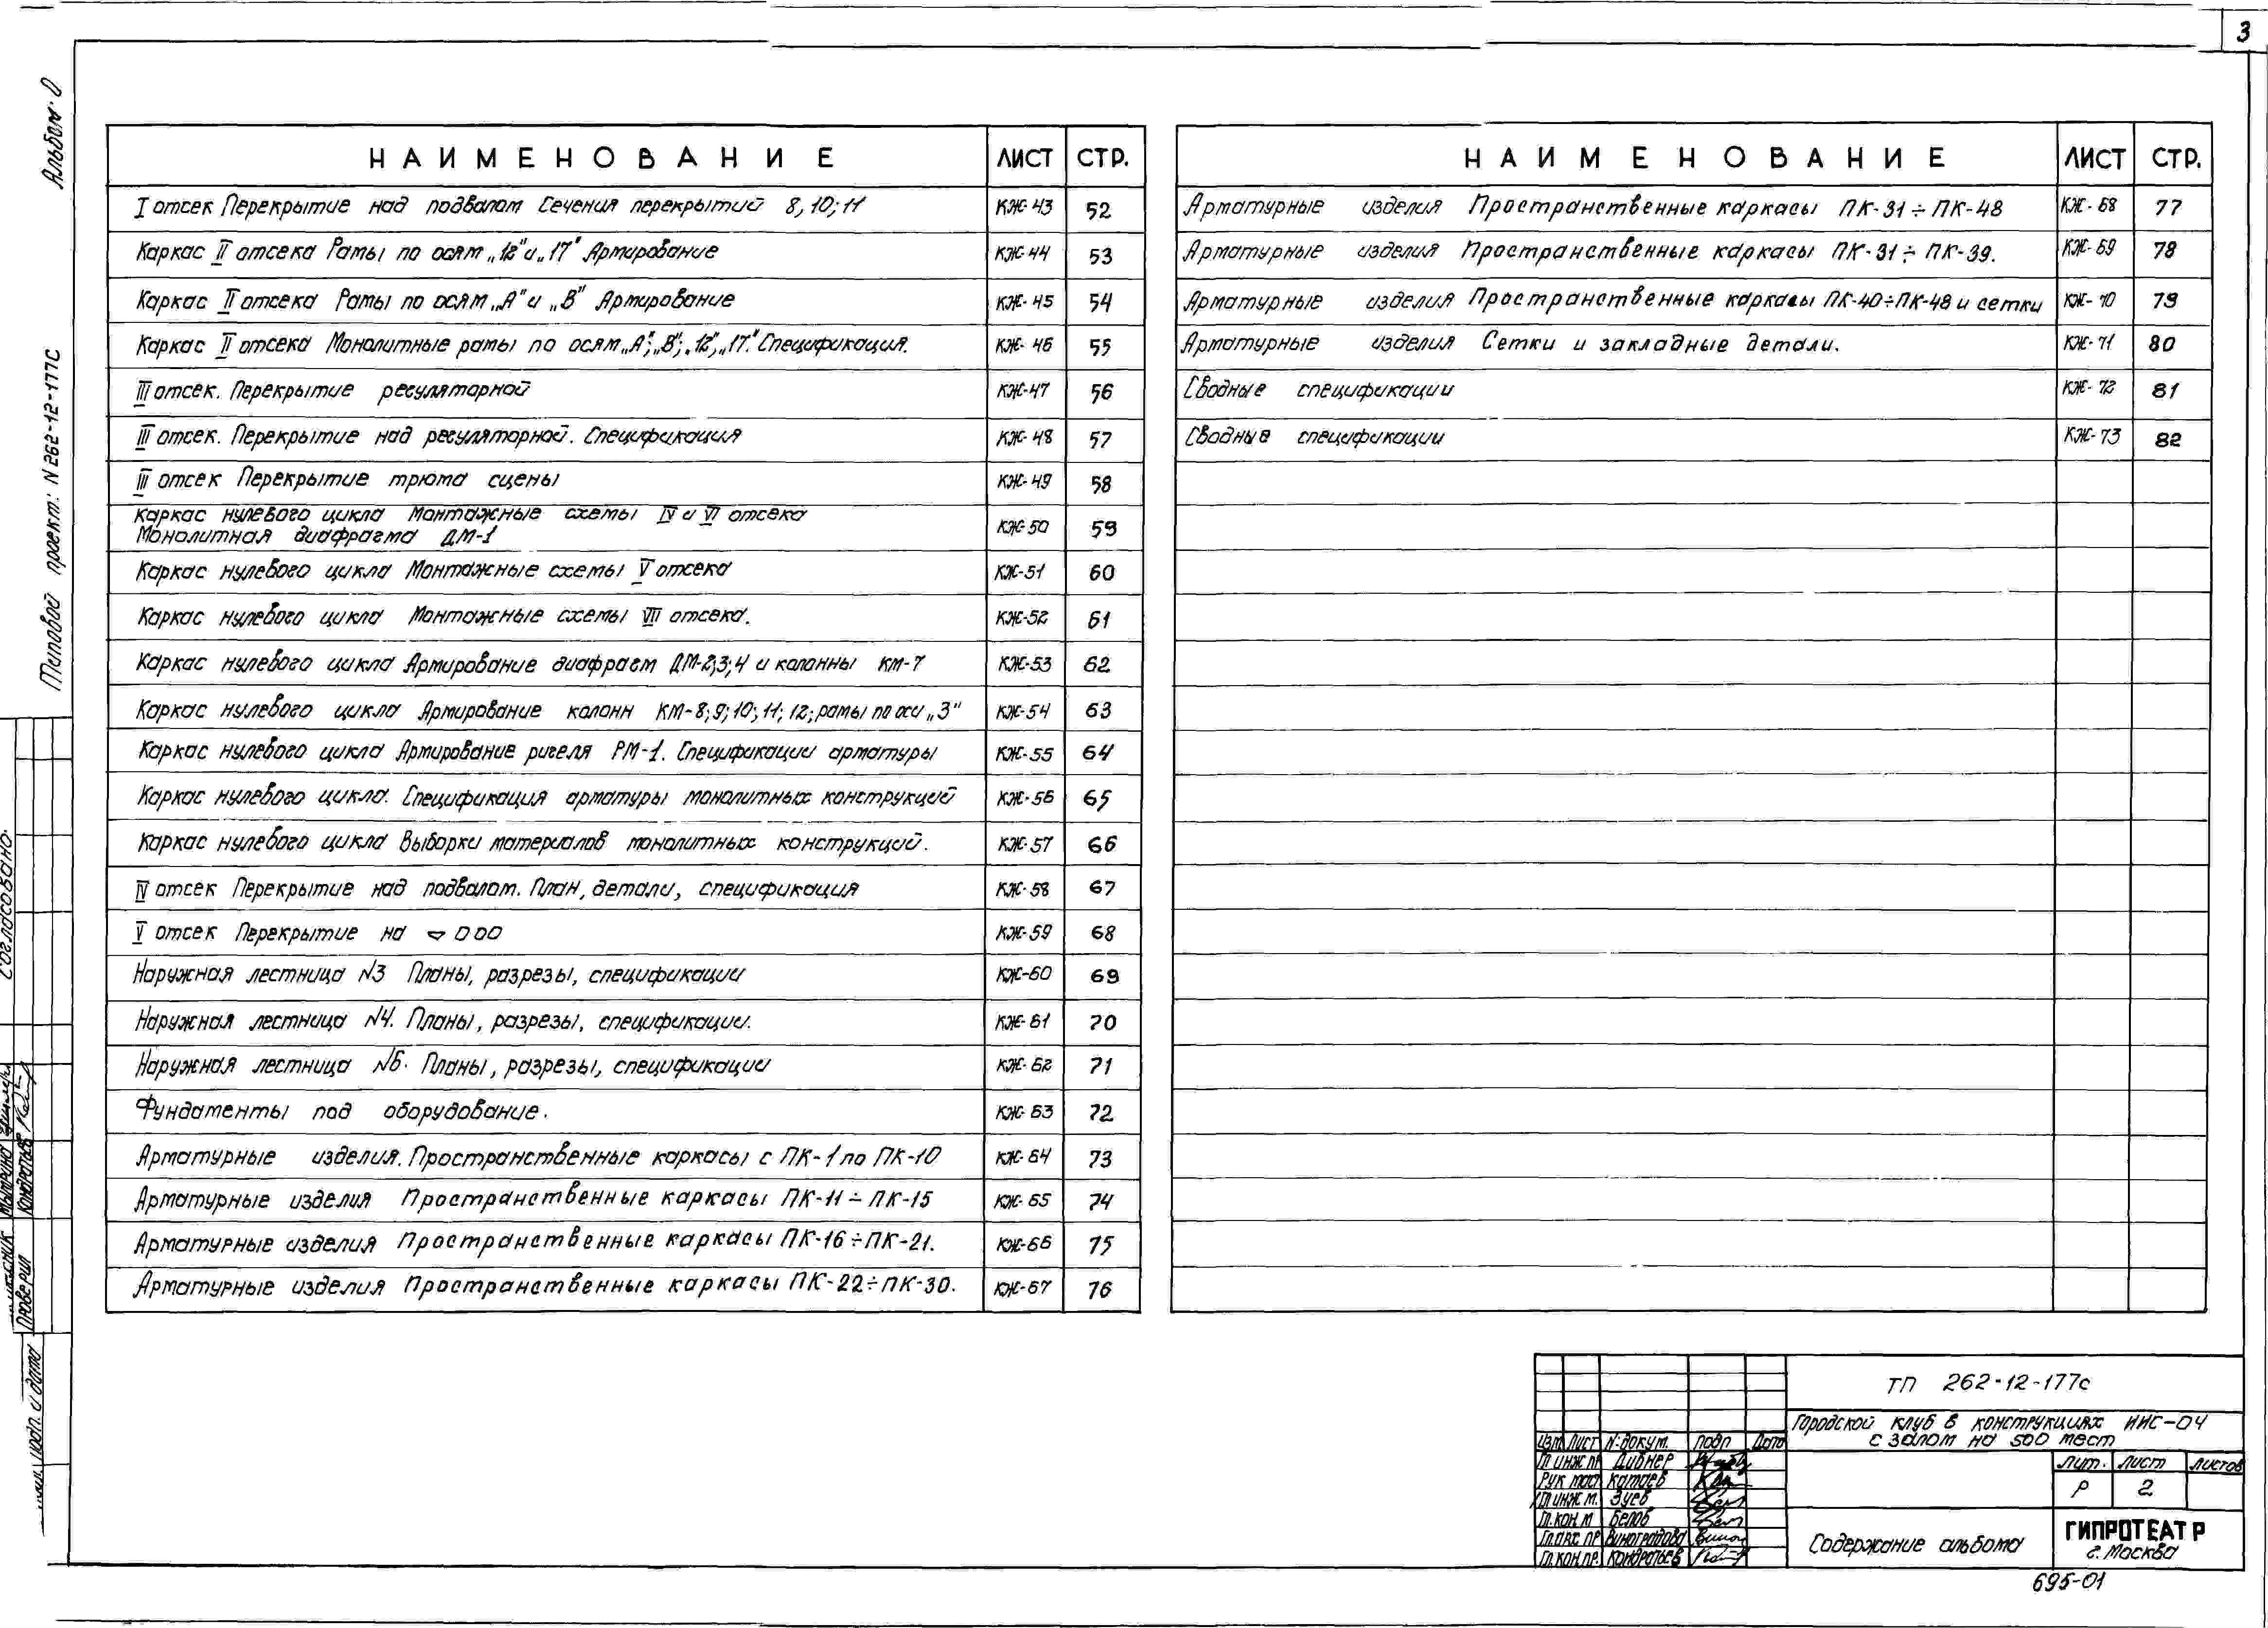 3
Альбом: 0
Типовой проект: N 262-12-177С
НАИМЕНОВАНИЕ ЛИСТ СТР.
I отсек Перекрытие над подвалом Сечения перекрытий 8, 10; 11 КЖ-43 52
Каркас II отсека Рамы по осям „12" и „17" Армирование КЖ-44 53
Каркас II отсека Рамы по осям „А" и „В" Армирование КЖ-45 54
Каркас II отсека Монолитные рамы по осям „А", „В", „12", „17". Спецификация. КЖ-46 55
III отсек. Перекрытие регуляторной КЖ-47 56
III отсек. Перекрытие над регуляторной. Спецификация КЖ-48 57
III отсек Перекрытие трюма сцены КЖ-49 58
Каркас нулевого цикла Монтажные схемы IV и VI отсека
Монолитная диафрагма ДМ-1 КЖ-50 59
Каркас нулевого цикла Монтажные схемы V отсека КЖ-51 60
Каркас нулевого цикла Монтажные схемы VII отсека. КЖ-52 61
Каркас нулевого цикла Армирование диафрагм ДМ-2;3;4 и колонны КМ-7 КЖ-53 62
Каркас нулевого цикла Армирование колонн КМ-8; 9; 10; 11; 12; рамы по оси „3" КЖ-54 63
Каркас нулевого цикла Армирование ригеля РМ-1. Спецификации арматуры КЖ-55 64
Каркас нулевого цикла. Спецификация арматуры монолитных конструкций КЖ-56 65
Каркас нулевого цикла Выборки материалов монолитных конструкций. КЖ-57 66
IV отсек Перекрытие над подвалом. План, детали, спецификация КЖ-58 67
V отсек Перекрытие на 0 00 КЖ-59 68
Наружная лестница N3 Планы, разрезы, спецификации КЖ-60 69
Наружная лестница N4. Планы, разрезы, спецификации. КЖ-61 70
Наружная лестница N6. Планы, разрезы, спецификации КЖ-62 71
Фундаменты под оборудование. КЖ-63 72
Арматурные изделия. Пространственные каркасы с ПК-1 по ПК-10 КЖ-64 73
Арматурные изделия Пространственные каркасы ПК-11 ÷ ПК-15 КЖ-65 74
Арматурные изделия Пространственные каркасы ПК-16 ÷ ПК-21. КЖ-66 75
Арматурные изделия Пространственные каркасы ПК-22 ÷ ПК-30. КЖ-67 76
НАИМЕНОВАНИЕ ЛИСТ СТР.
Арматурные изделия Пространственные каркасы ПК-31 ÷ ПК-48 КЖ-68 77
Арматурные изделия Пространственные каркасы ПК-31 ÷ ПК-39. КЖ-69 78
Арматурные изделия Пространственные каркасы ПК-40 ÷ ПК-48 и сетки КЖ-70 79
Арматурные изделия Сетки и закладные детали. КЖ-71 80
Сводные спецификации КЖ-72 81
Сводные спецификации КЖ-73 82
Согласовано:
Проверил Кондратьев
подп. и дата
ТП 262-12-177с
Городской клуб в конструкциях ИИС-04
с залом на 500 мест
Изм Лист N докум. Подп Дата
Гл инж пр Дибнер
Рук маст Катаев
Гл инж м. Зуев
Гл. кон. м Белов
Гл. арх. пр Виноградова
Гл. кон. пр. Кондратьев
Лит. Лист Листов
Р 2
Содержание альбома
ГИПРОТЕАТР
г. Москва
695-01